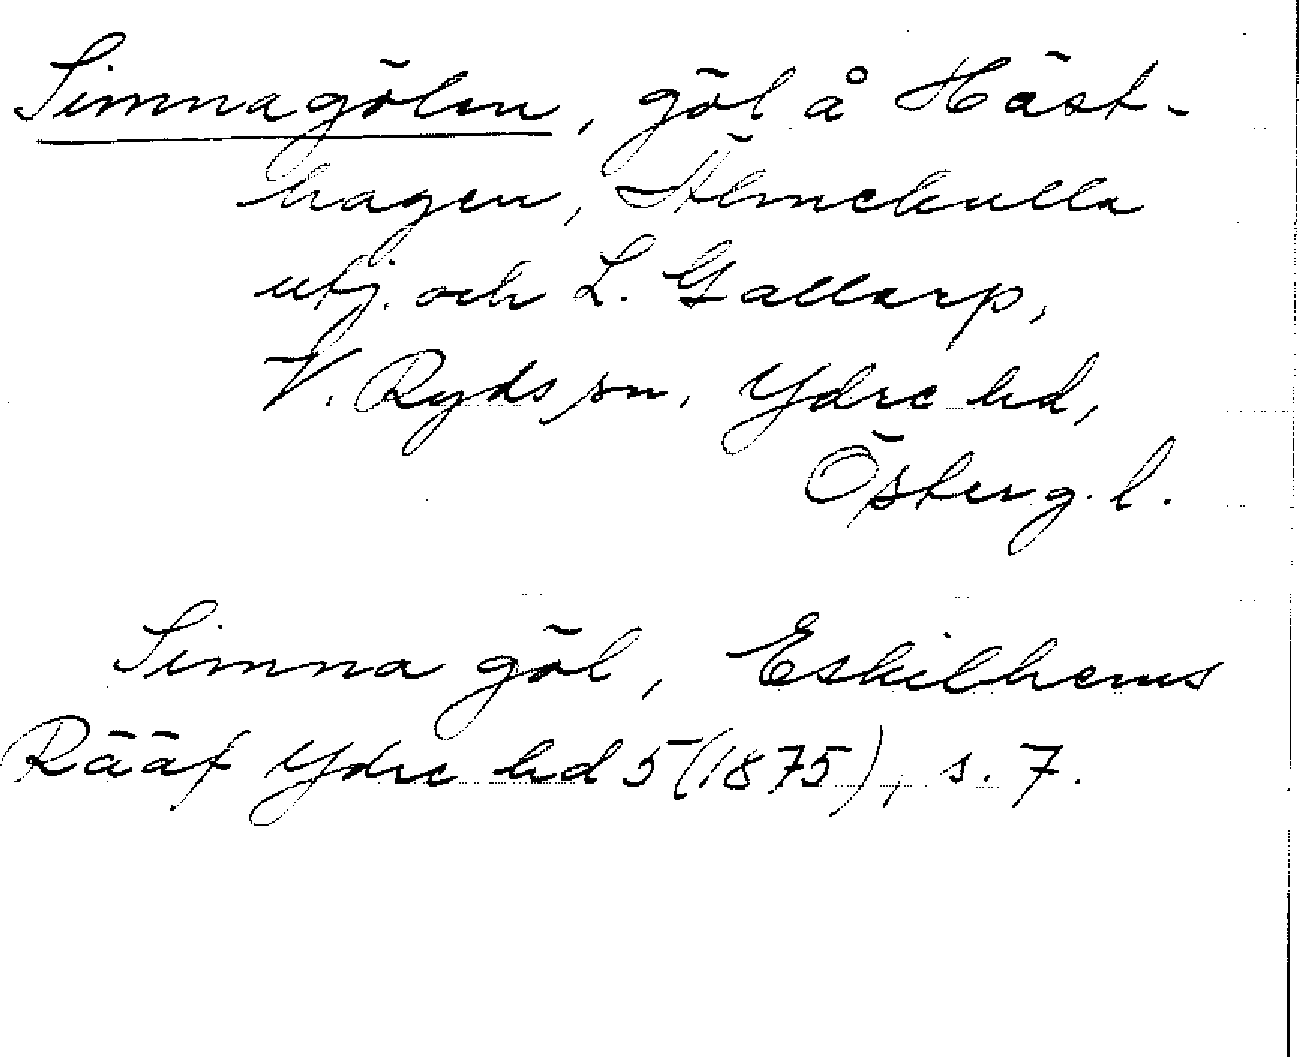 Simnagölen, göl å Häst-
hagen, Älmekulla
utj. och L. Gallarp,
V. Ryds sn, Ydre hd,
Österg. l.
Simna göl, Eskilhems
Rääf Ydre hd 5 (1875), s. 7.